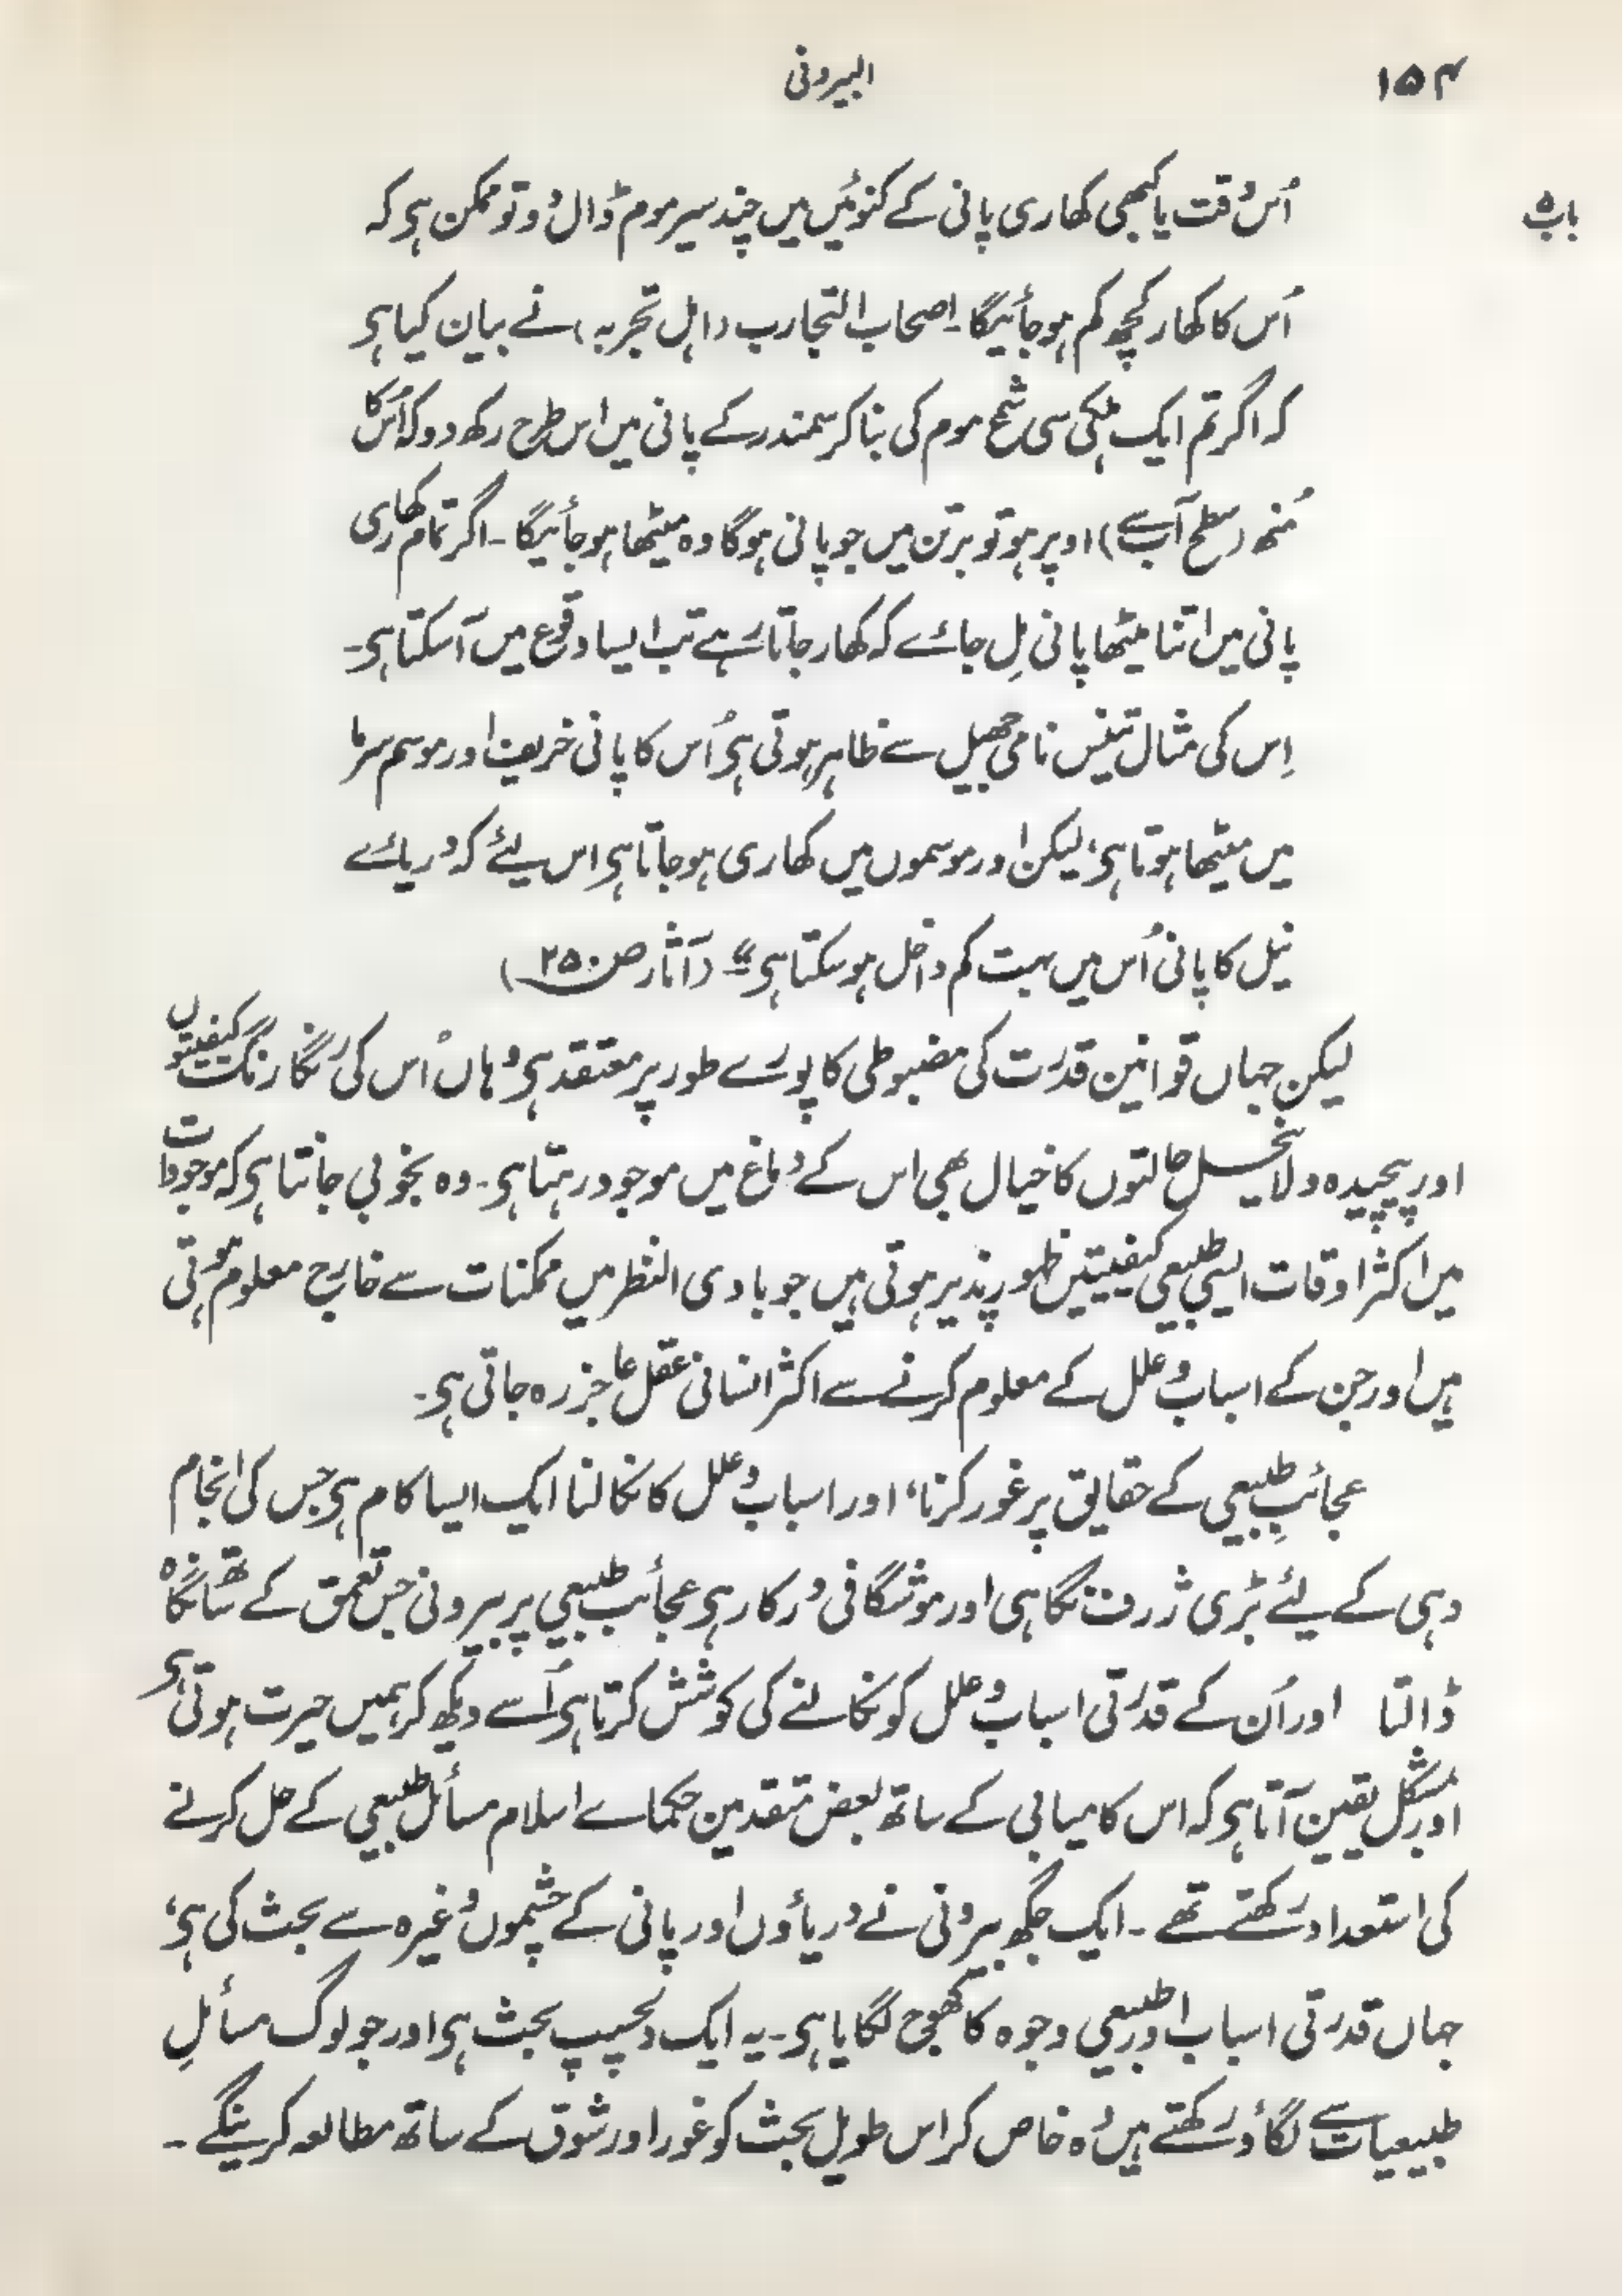 ۱۵۴
البیرونی
باب ۵
اُس وقت یا کبھی کھاری پانی کے کنوئیں میں چند سیر موم ڈال دو تو ممکن ہی کہ
اُس کا کھار کچھ کم ہو جائیگا۔ اصحاب التجارب (اہل تجربہ) نے بیان کیا ہی
کہ اگر تم ایک ہلکی سی شمع موم کی بنا کر سمندر کے پانی میں اس طرح رکھ دو کہ اُس کا
مُنھ (سطح آب سے) اوپر ہو تو برتن میں جو پانی ہوگا وہ میٹھا ہو جائیگا۔ اگر تمام کھاری
پانی میں اتنا میٹھا پانی مِل جائے کہ کھار جاتا رہے تب ایسا وقوع میں آ سکتا ہی۔
اِس کی مثال تنیس نامی جھیل سے ظاہر ہوتی ہی اُس کا پانی خریف اور موسم سرما
میں میٹھا ہوتا ہی، لیکن اور موسموں میں کھاری ہو جاتا ہی اس لیئے کہ دریائے
نیل کا پانی اُس میں بہت کم داخل ہو سکتا ہی“ (آثار ص ۲۵۰)
لیکن جہاں قوانین قدرت کی مضبوطی کا پورے طور پر معتقد ہی وہاں اُس کی رنگا رنگ کیفیتوں
اور پیچیدہ و لاینحل حالتوں کا خیال بھی اس کے دماغ میں موجود رہتا ہی۔ وہ بخوبی جانتا ہی کہ موجودات
میں اکثر اوقات ایسی طبیعی کیفیتیں ظہور پذیر ہوتی ہیں جو بادی النظر میں ممکنات سے خارج معلوم ہوتی
ہیں اور جن کے اسباب و علل کے معلوم کرنے سے اکثر انسانی عقل عاجز رہ جاتی ہی۔
عجائبِ طبیعی کے حقایق پر غور کرنا، اور اسباب و علل کا نکالنا ایک ایسا کام ہی جس کی انجام
دہی کے لیئے بڑی ژرف نگاہی اور موشگافی درکار ہی عجائب طبیعی پر بیرونی جس تعمق کے ساتھ نگاہ
ڈالتا اور اُن کے قدرتی اسباب و علل کو نکالنے کی کوشش کرتا ہی اُسے دیکھ کر ہمیں حیرت ہوتی ہی
اور بمشکل یقین آتا ہی کہ اس کامیابی کے ساتھ بعض متقدمین حکماے اسلام مسائل طبیعی کے حل کرنے
کی استعداد رکھتے تھے۔ ایک جگھ بیرونی نے دریاؤں اور پانی کے چشموں وغیرہ سے بحث کی ہی،
جہاں قدرتی اسباب اور طبیعی وجوہ کا کھوج لگایا ہی۔ یہ ایک دلچسپ بحث ہی اور جو لوگ مسائلِ
طبیعیات سے لگاؤ رکھتے ہیں وہ خاص کر اس طویل بحث کو غور اور شوق کے ساتھ مطالعہ کرینگے۔